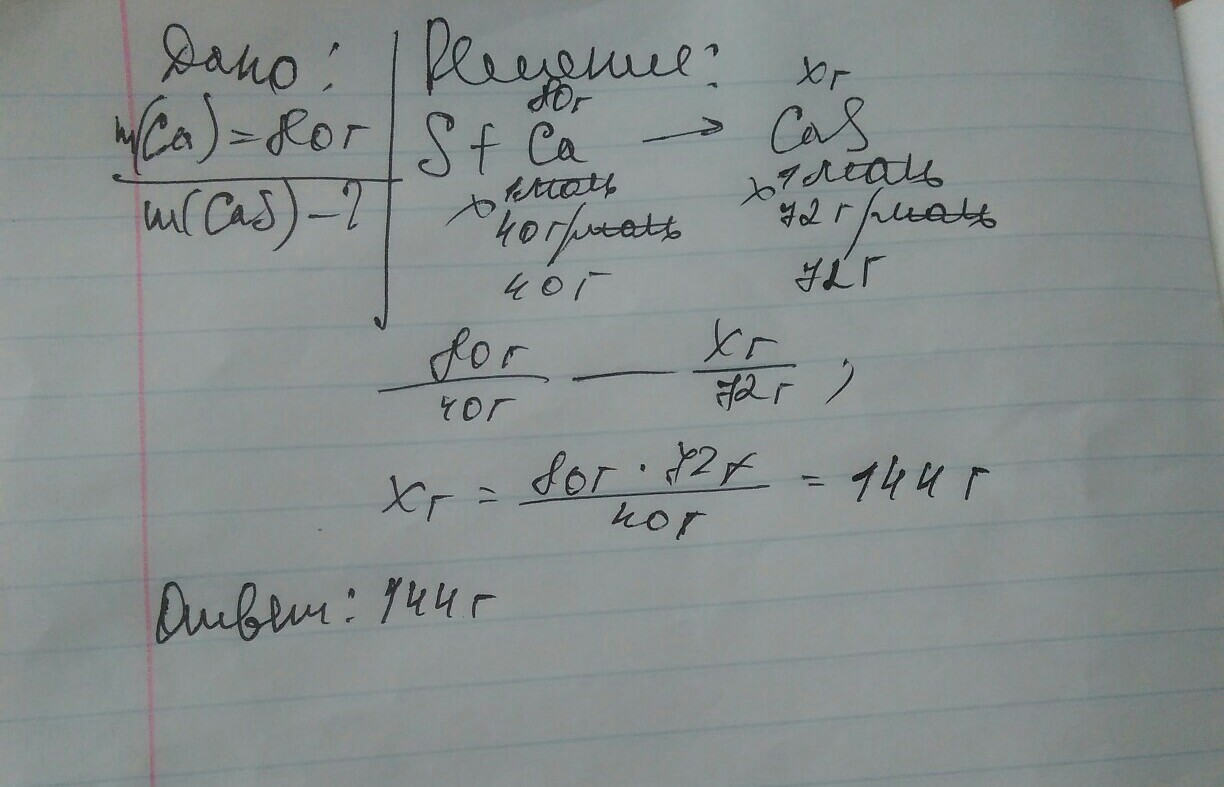 Дано: Решение:
m(Ca) = 80 г
m(CaS) – ?
80г xг
S + Ca → CaS
x 1моль x 1моль
40 г/моль 72 г/моль
40 г 72 г
80 г / 40 г — x г / 72 г ;
x г = 80 г · 72 г / 40 г = 144 г
Ответ: 144 г